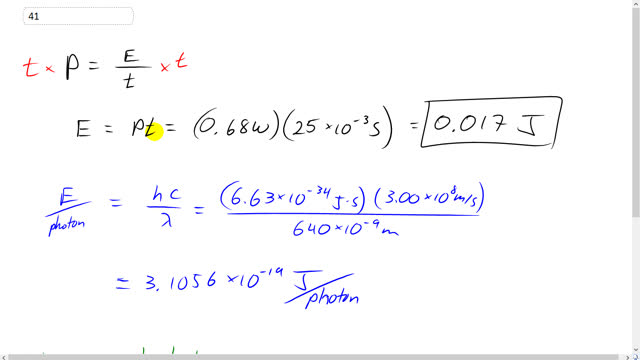 41
t × P = E/t × t
E = Pt = (0.68W)(25×10⁻³s) = 0.017 J
E/photon = hc/λ = (6.63×10⁻³⁴ J·s)(3.00×10⁸m/s)/640×10⁻⁹m
= 3.1056×10⁻¹⁹ J/photon